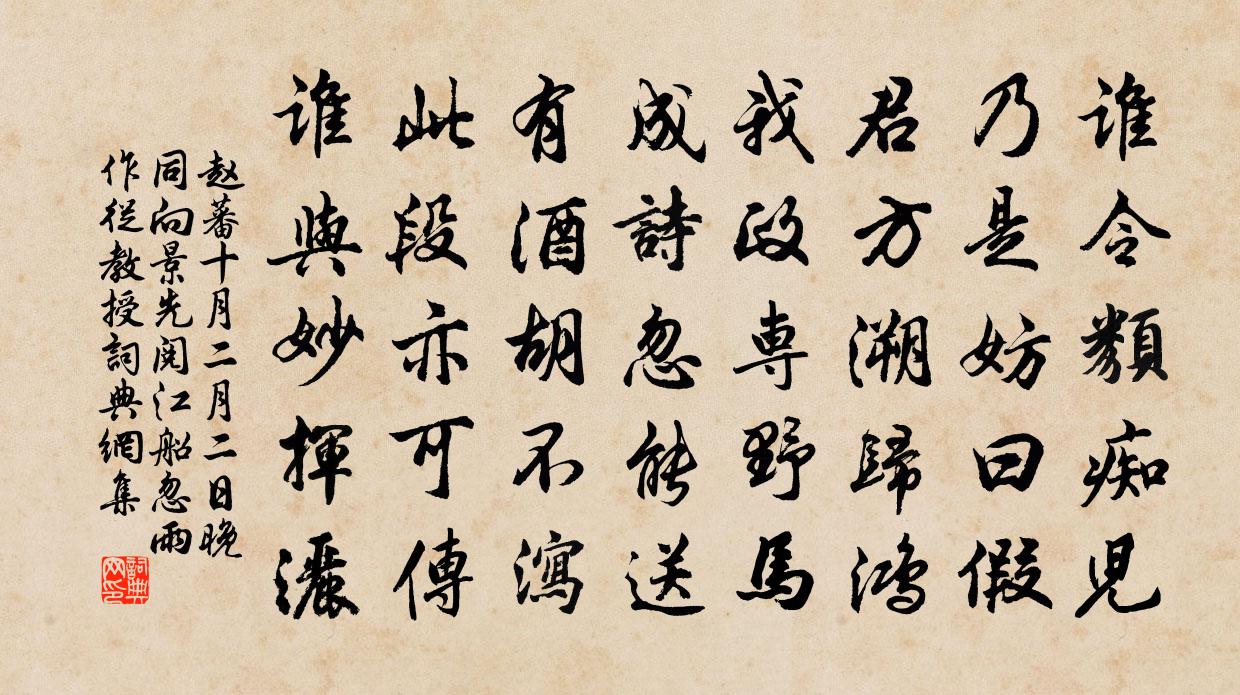 谁令纇痴児
乃是妨曰假
君方溯歸鸿
我政専野馬
成詩忽能送
有酒胡不瀉
此段亦可傳
谁與妙揮灑
赵蕃十月二月二日晚
同向景先阅江船忽雨
作從教授詞典網集
詞典网印